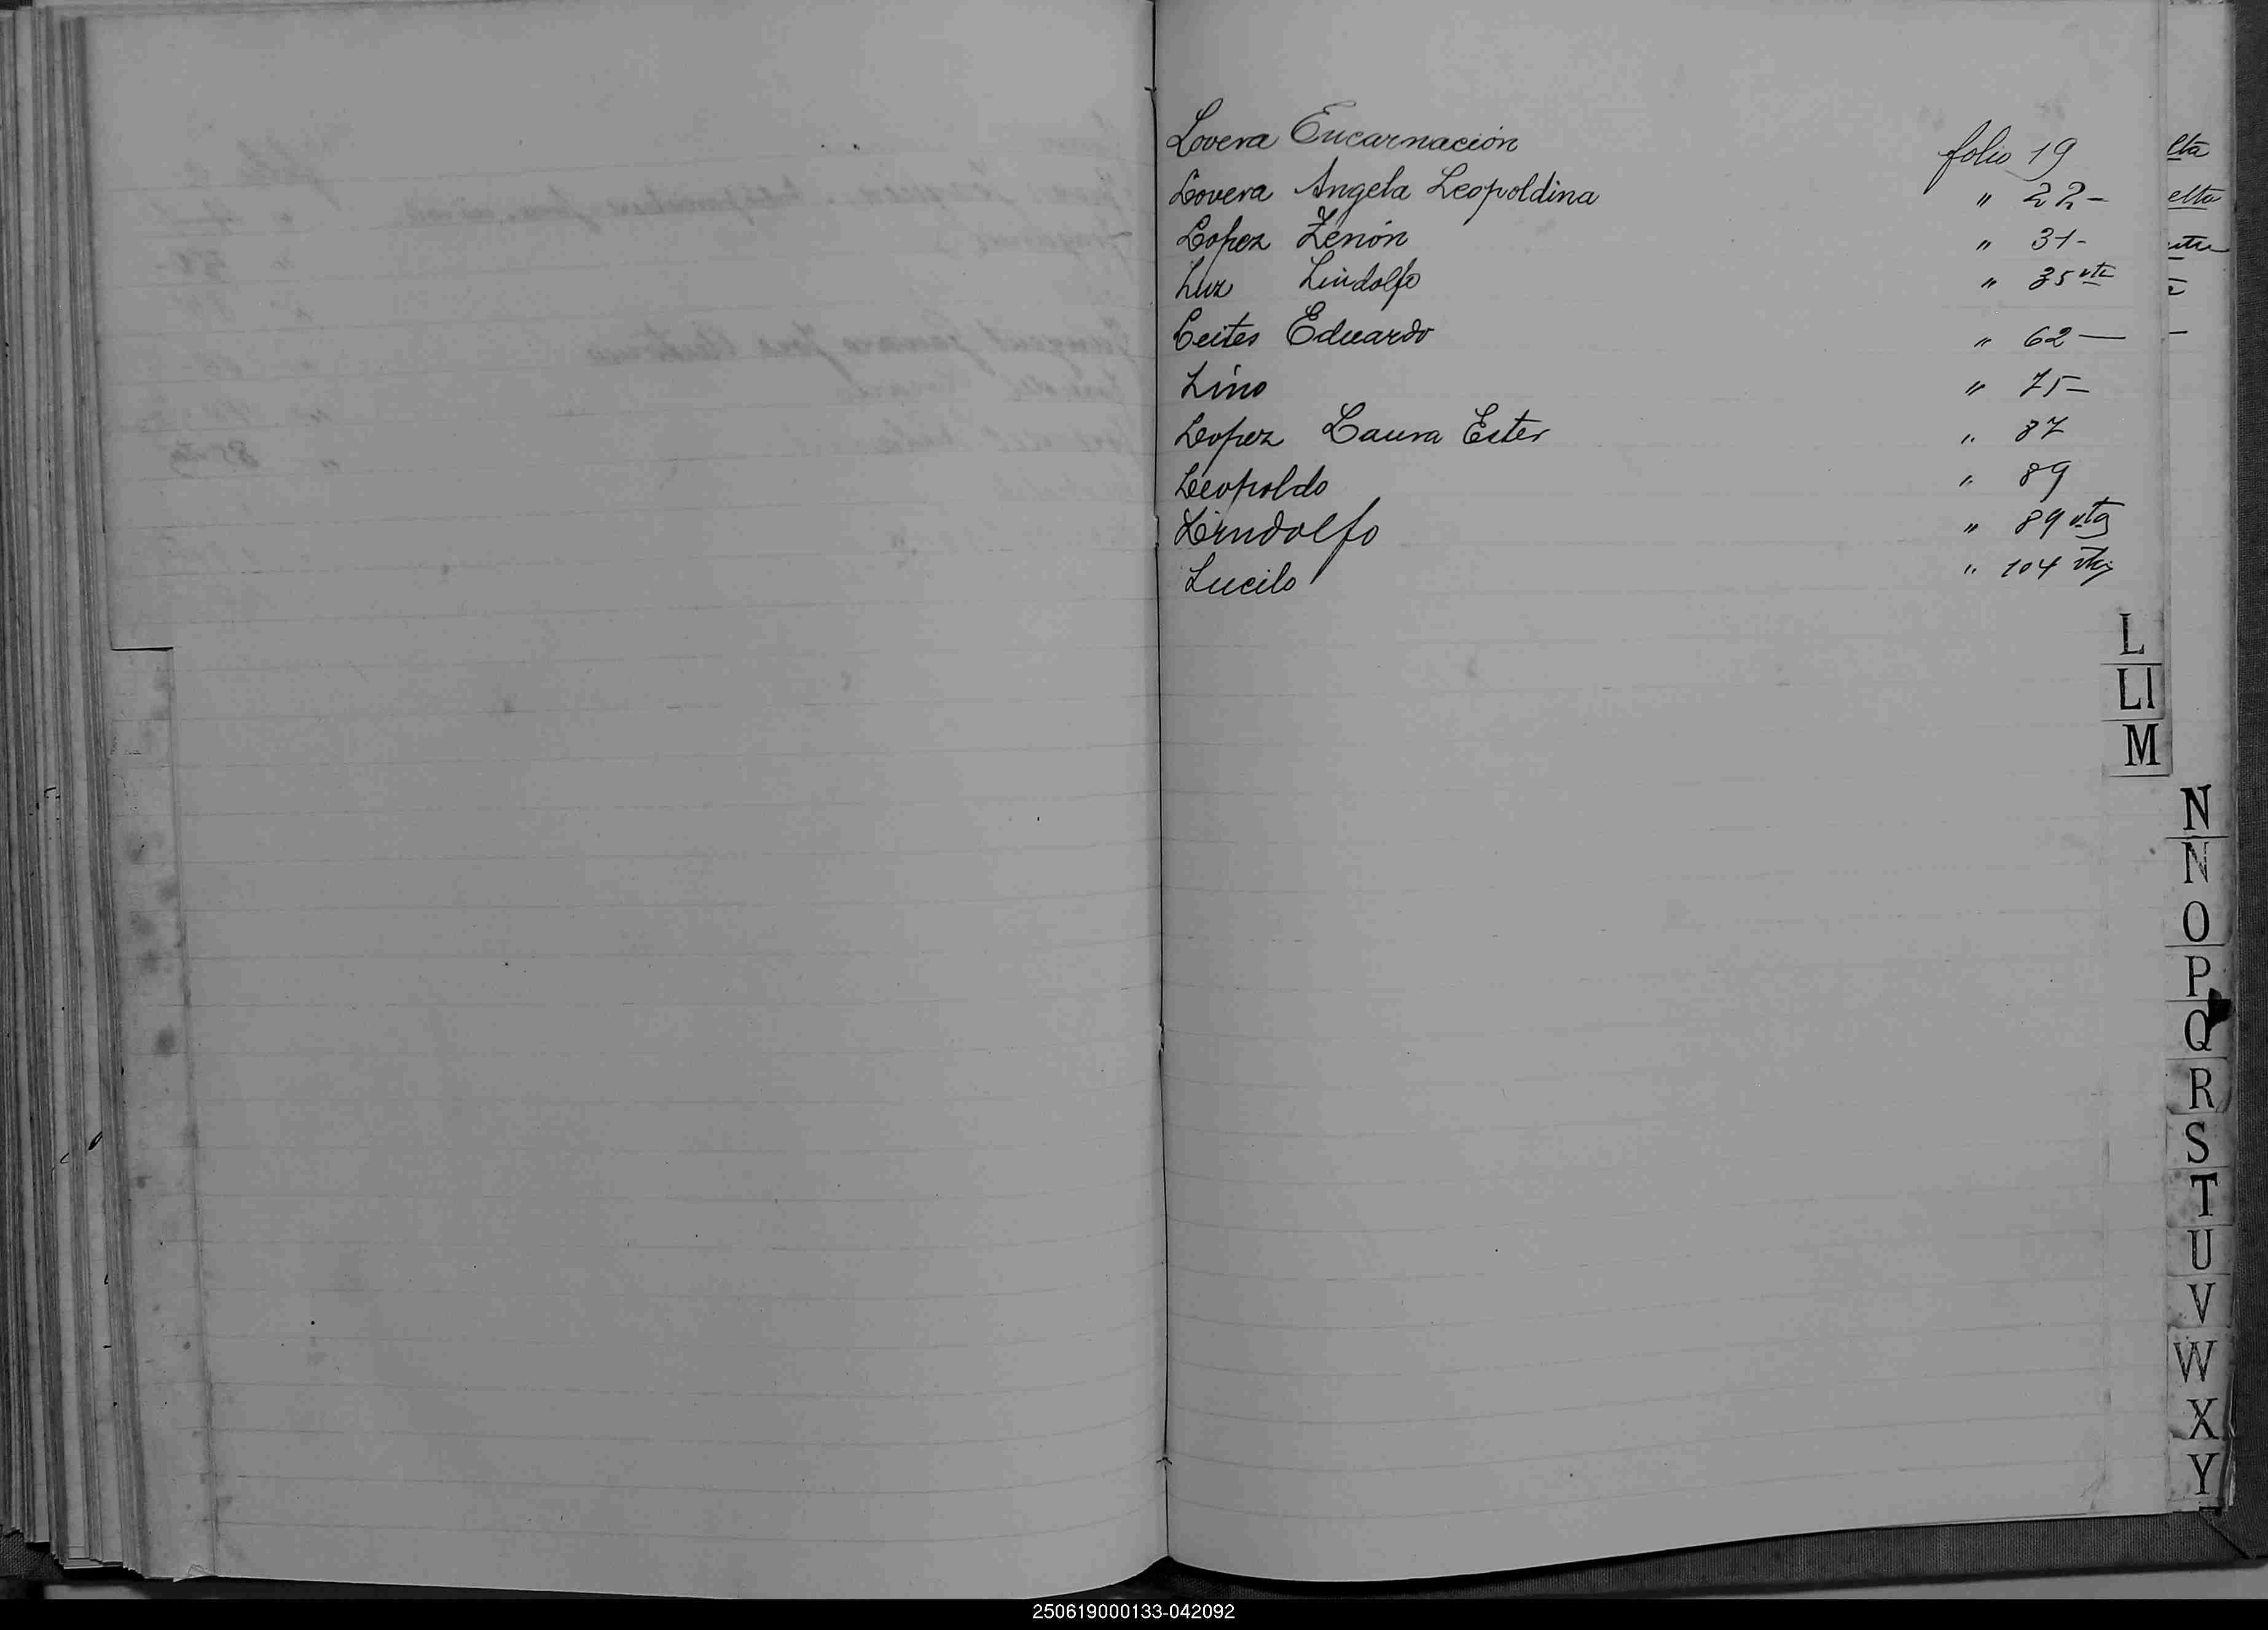 Lovera Encarnación folio 19
Lovera Angela Leopoldina " 22-
Lopez Zenón " 31-
Luz Lindolfo " 35 vta
Leites Eduardo " 62—
Lino " 75-
Lopez Laura Ester " 87
Leopoldo " 89
Lindolfo " 89 vta
Lucilo " 104 vta
L
Ll
M
N
N
O
P
Q
R
S
T
U
V
W
X
Y
250619000133-042092